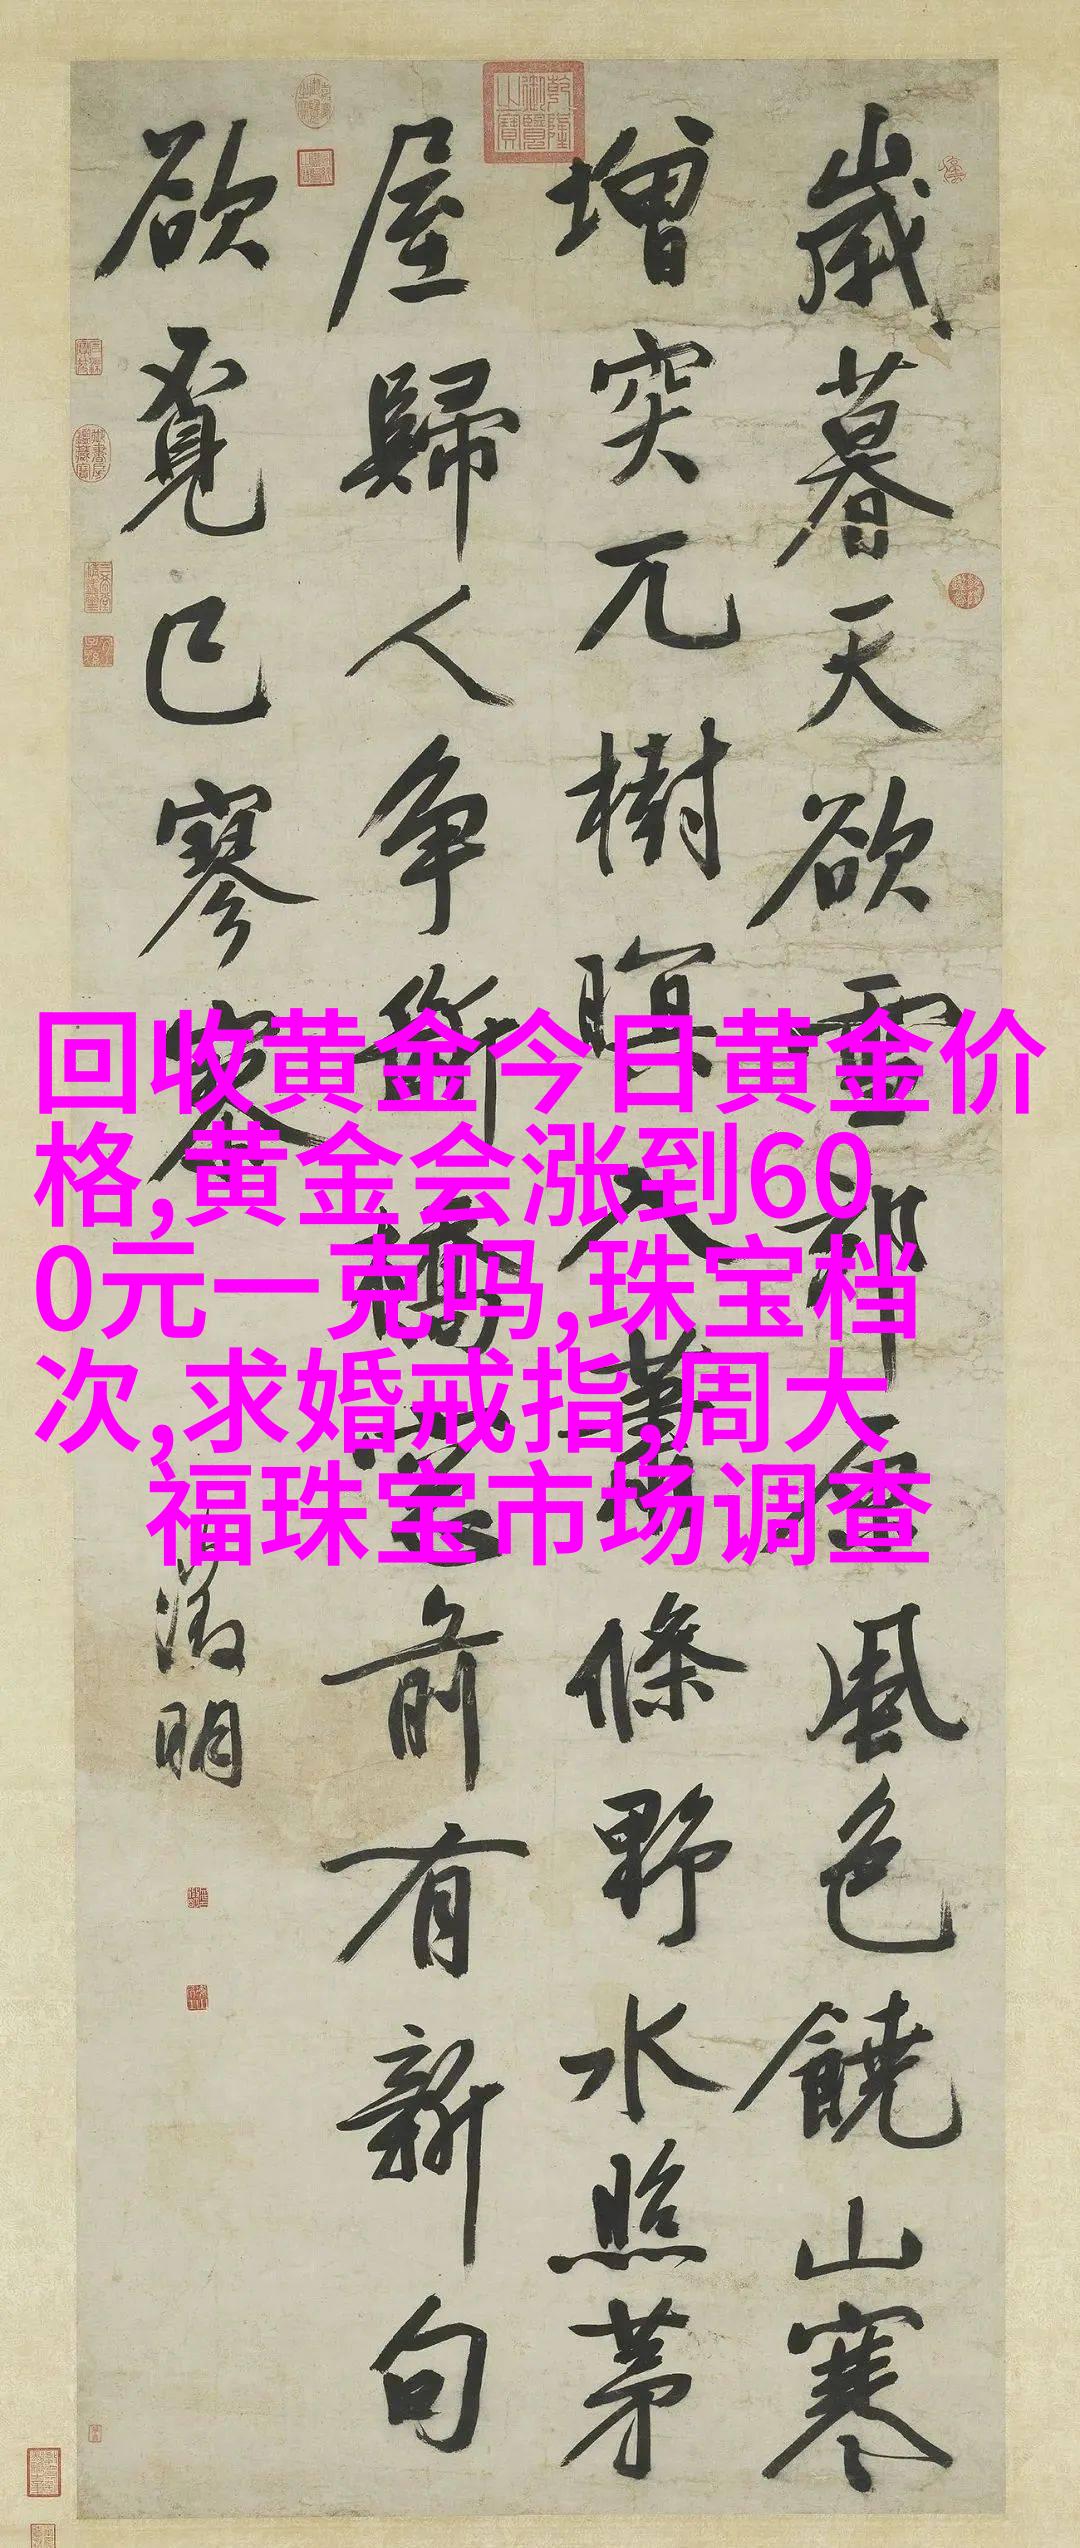 歲暮天欲雪郊原風色饒山寒
增突兀樹暝入蕭條野水照茅
屋歸人爭斷橋前有新句
欲覓已寥寥
徵明
乾隆御覽之寶
回收黄金今日黄金价
格,黄金会涨到60
0元一克吗,珠宝档
次,求婚戒指,周大
福珠宝市场调查